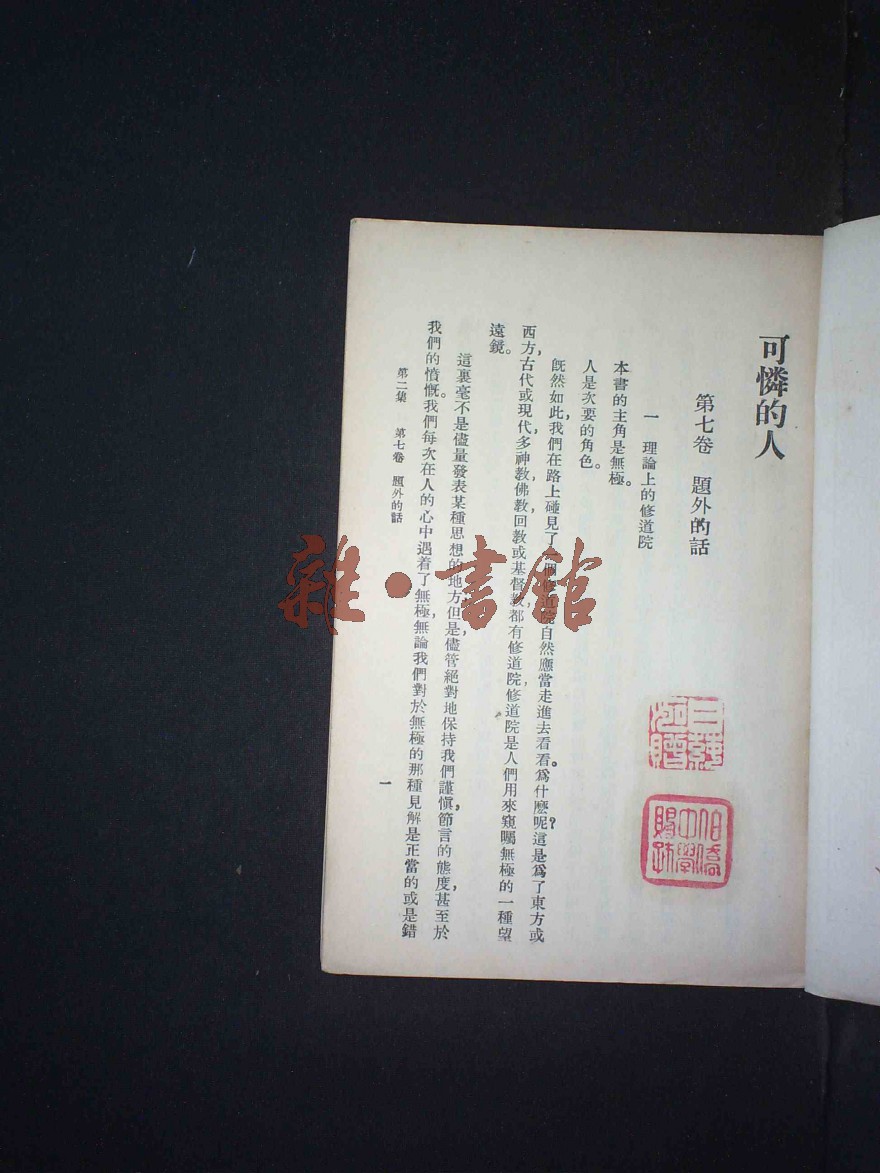 可憐的人
第七卷 題外的話
一 理論上的修道院
本書的主角是無極。
人是次要的角色。
既然如此，我們在路上碰見了一個修道院自然應當走進去看看。爲什麽呢？這是爲了東方或
西方，古代或現代，多神教，佛教，回教或基督教，都有修道院，修道院是人們用來窺矚無極的一種望
遠鏡。
這裏毫不是儘量發表某種思想的地方，但是，儘管絕對地保持我們謹愼，節言的態度，甚至於
我們的憤慨。我們每次在人的心中遇着了無極，無論我們對於無極的那種見解是正當的或是錯
第二集 第七卷 題外的話
一
雜·書館
伯僑
中學
賜訖